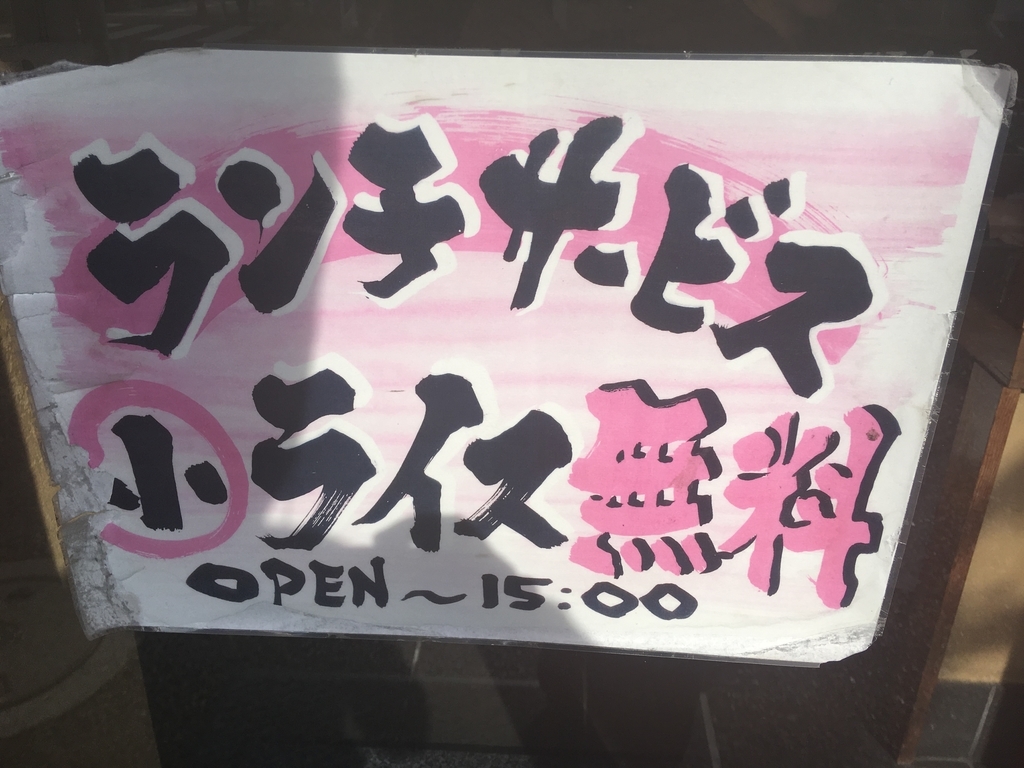 ランチサービス
小ライス無料
OPEN～15:00